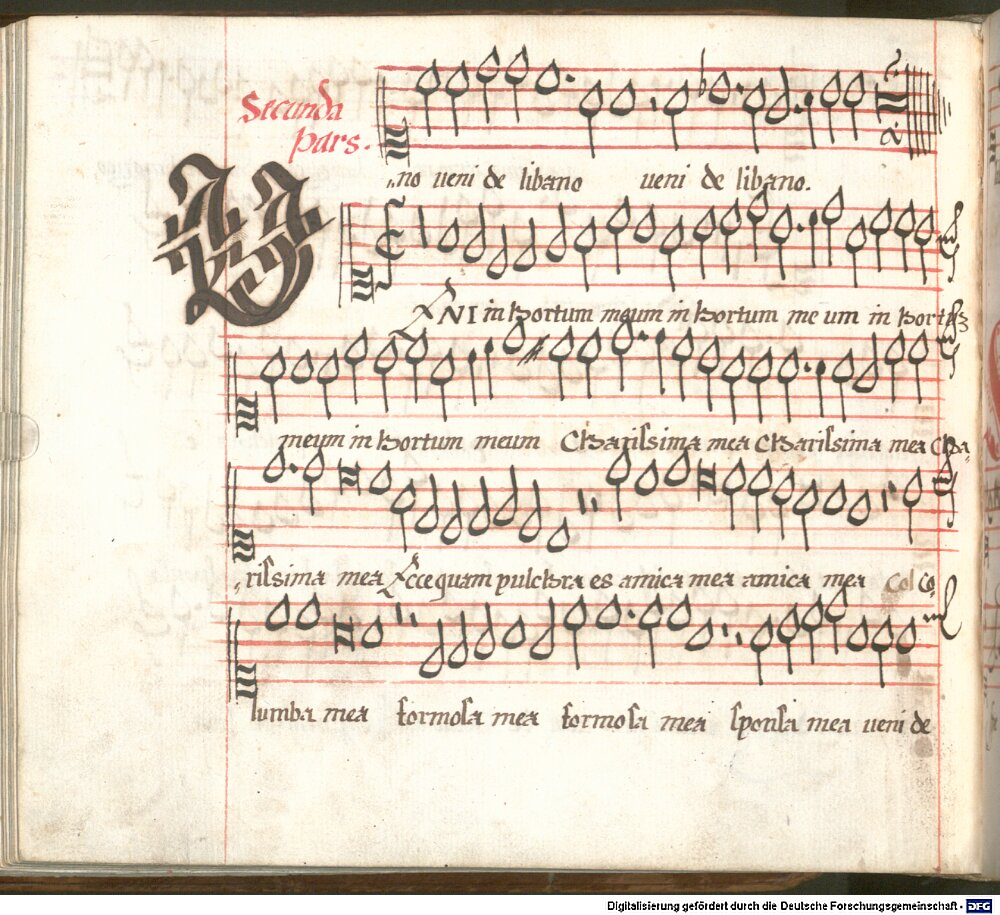 Secunda
pars.
no veni de libano veni de libano.
VENI in hortum meum in hortum me um in hortum
meum in hortum meum Charissima mea Charissima mea Cha
rissima mea Ecce quam pulchra es amica mea amica mea Col Co
lumba mea formosa mea formosa mea sponsa mea veni de
Digitalisierung gefördert durch die Deutsche Forschungsgemeinschaft - DFG